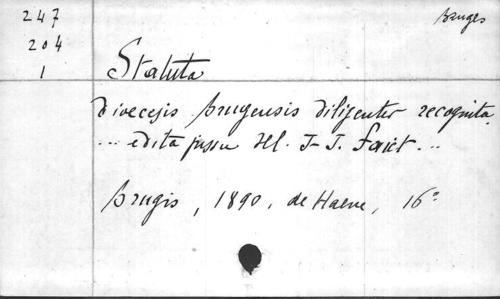 247
Bruges
204
1
Statuta
dioecesis brugensis diligenter recognita
... edita jussu Ill. J-J. Faict...
Brugis, 1890, de Haene, 16°